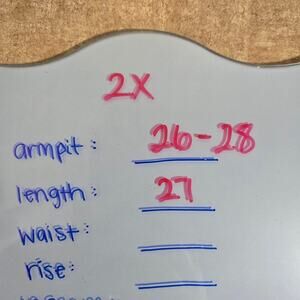 2X
armpit: 26-28
length: 27
waist:
rise: